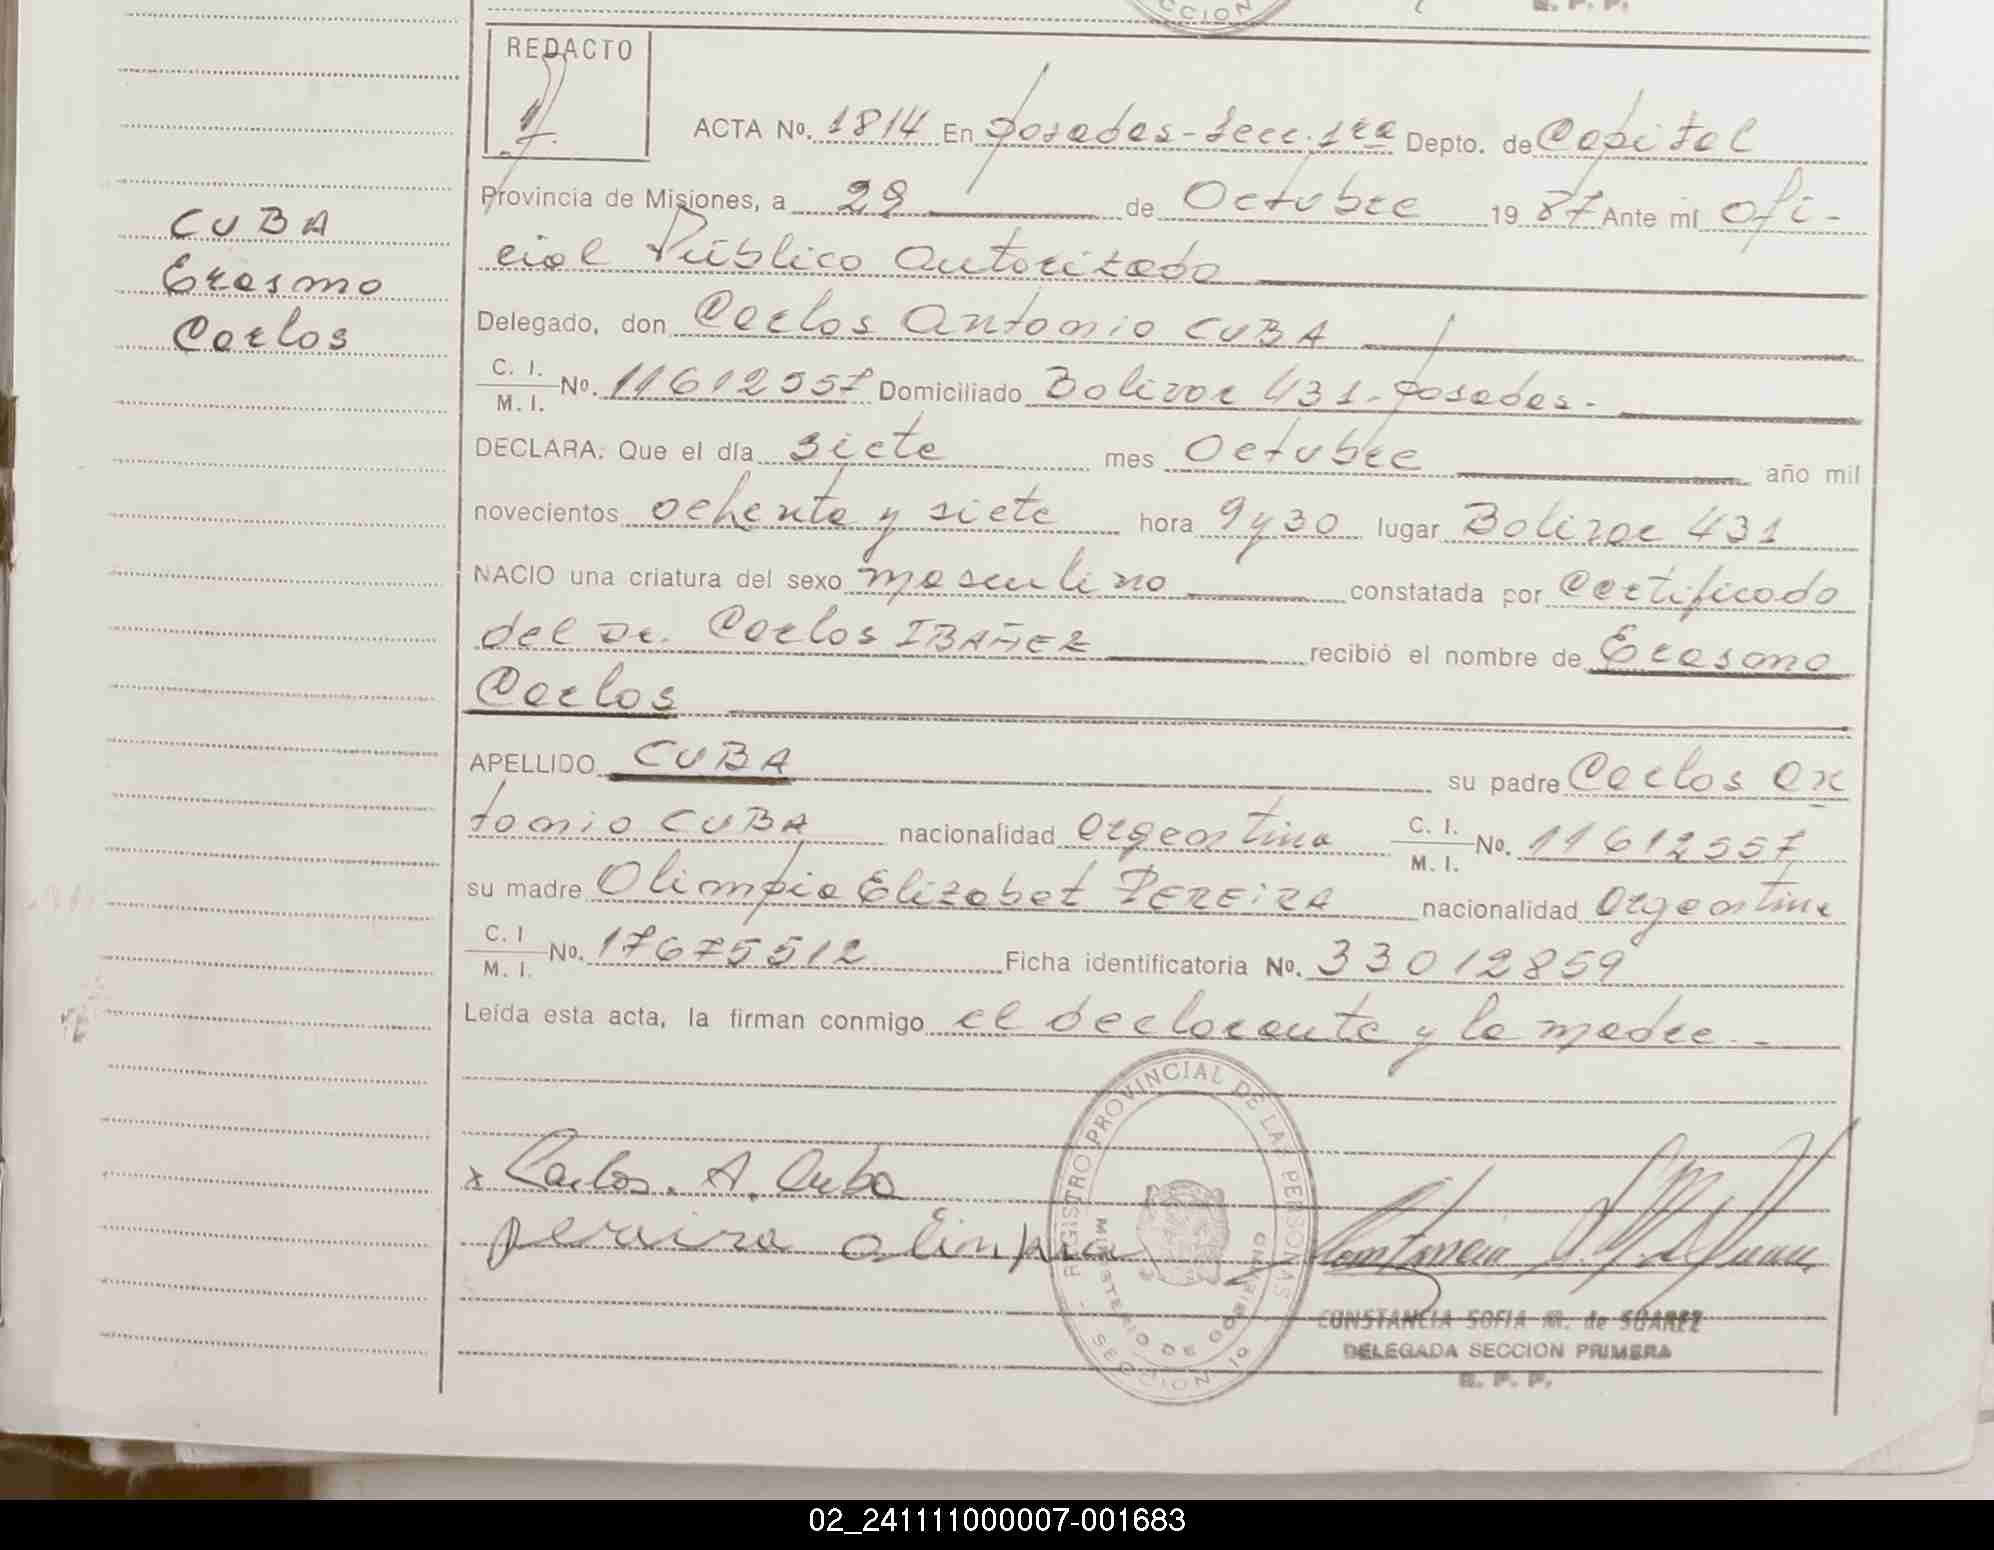 E. P. P.
CCION
REDACTO
ACTA Nº. 1814 En Posadas - Secc. 1ra Depto. de Capital
Provincia de Misiones, a 29 de Octubre 1987 Ante mí Ofi-
cial Público Autorizado
CUBA
Erasmo
Carlos
Delegado, don Carlos Antonio CUBA
C. I. / M. I. Nº. 11612557 Domiciliado Bolivar 431 - Posadas -
DECLARA: Que el día siete mes Octubre año mil
novecientos ochenta y siete hora 9 y 30 lugar Bolivar 431
NACIO una criatura del sexo masculino constatada por Certificado
del Dr. Carlos IBAÑEZ recibió el nombre de Erasmo
Carlos
APELLIDO CUBA su padre Carlos An
tonio CUBA nacionalidad Argentina C. I. / M. I. Nº. 11612557
su madre Olimpia Elizabet PEREIRA nacionalidad Argentina
C. I / M. I. Nº. 17675512 Ficha identificatoria Nº. 33012859
Leída esta acta, la firman conmigo el declarante y la madre. -
REGISTRO PROVINCIAL DE LAS PERSONAS
MINISTERIO DE GOBIERNO
SECCION 1º
x Carlos. A. Cuba
pereira olinpia
CONSTANCIA SOFIA M. de SUAREZ
DELEGADA SECCION PRIMERA
E. P. P.
02_241111000007-001683